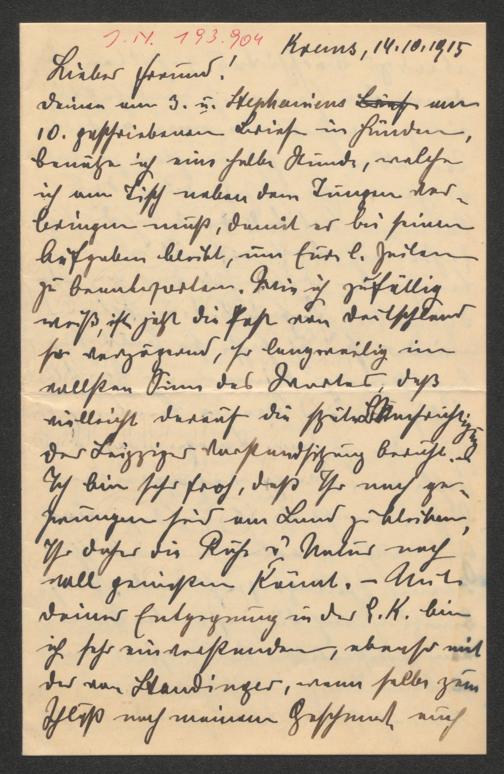 J.N. 193.904
Krems, 14.10.1915
Lieber Freund!
Deinen am 3. u. Stephaniens Brief am
10. geschriebenen Brief in Händen,
benütze ich eine halbe Stunde, welche
ich am Tisch neben dem Jungen ver-
bringen muß, damit er bei seinen
Aufgaben bleibt, um Eure l. Zeilen
zu beantworten. Wie ich zufällig
weiß, ist jetzt die Post von Deutschland
so verzögernd, so langweilig im
vollsten Sinn des Wortes, daß
vielleicht darauf die späte Benachrichtigung
der Leipziger Vorstandsitzung beruht.
Ich bin sehr froh, daß Ihr noch ge-
zwungen seid am Land zu bleiben,
Ihr daher die Ruhe u. Natur noch
voll genießen könnt. – Mit
Deiner Entgegnung in der L.K. bin
ich sehr einverstanden, ebenso mit
der von Standinger, wenn selbe zum
Schluß nach meinem Geschmack auch